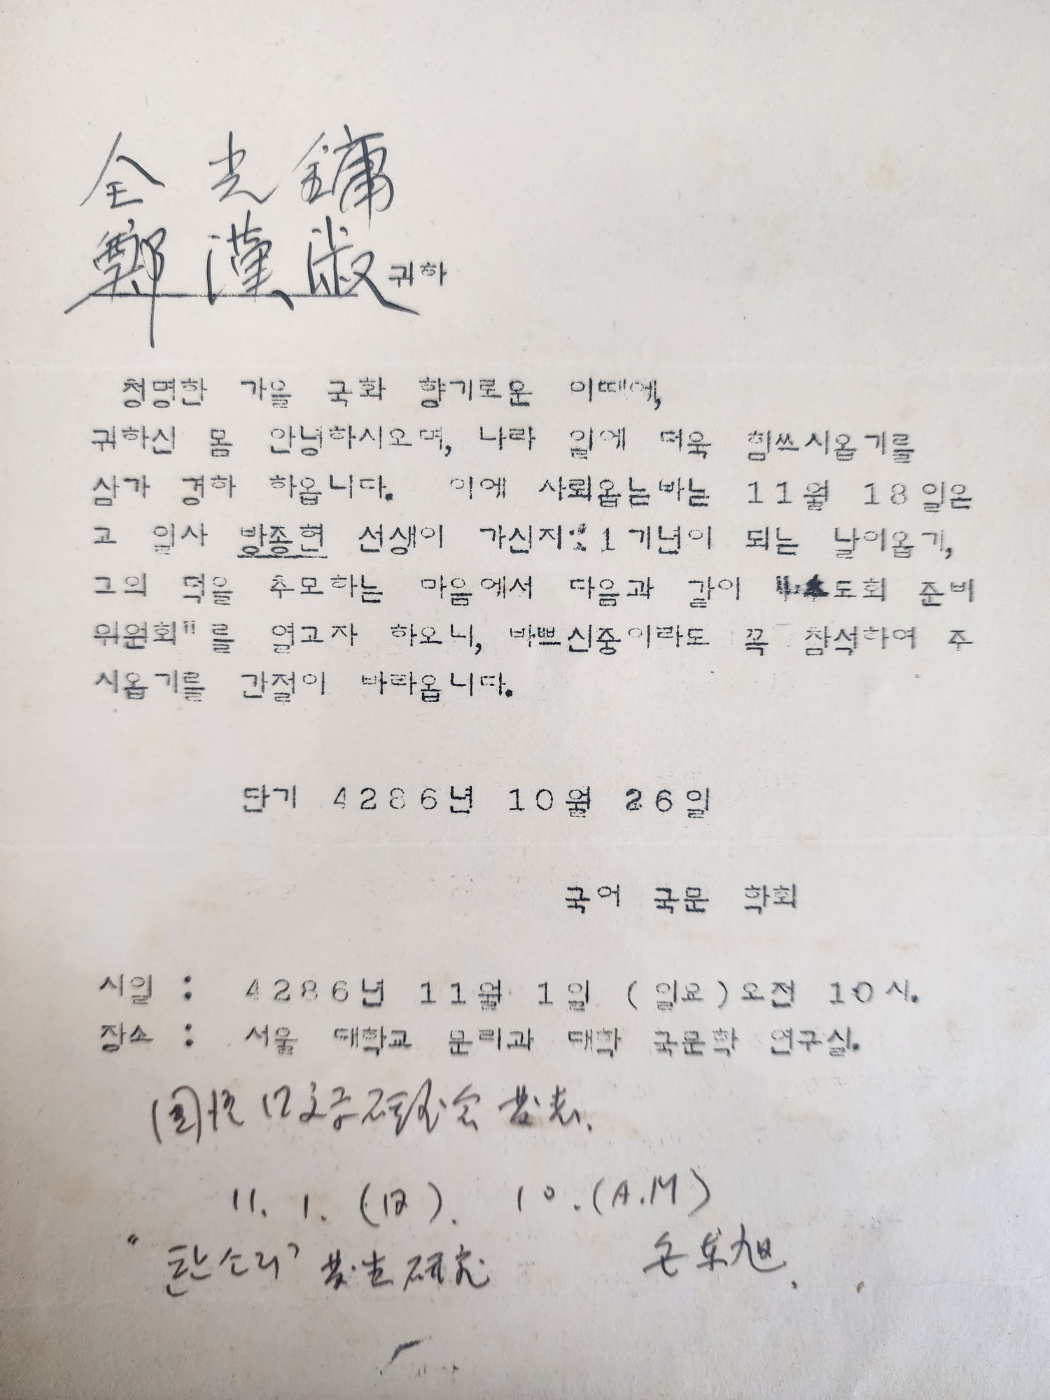 全光鏞
鄭漢淑 귀하
청명한 가을 국화 향기로운 이때에,
귀하신 몸 안녕하시오며, 나라 일에 더욱 힘쓰시옵기를
삼가 경하 하옵니다. 이에 사뢰옵는바는 11월 18일은
고 일사 방종현 선생이 가신지 1기년이 되는 날이옵기,
그의 덕을 추모하는 마음에서 다음과 같이 도회 준비
위원회"를 열고자 하오니, 바쁘신중이라도 꼭 참석하여 주
시옵기를 간절이 바라옵니다.
단기 4286년 10월 26일
국어 국문 학회
시일 : 4286년 11월 1일 (일요)오전 10시.
장소 : 서울 대학교 문리과 대학 국문학 연구실.
文学 会 発表.
11. 1. (日). 10. (A.M)
"판소리" 発生研究